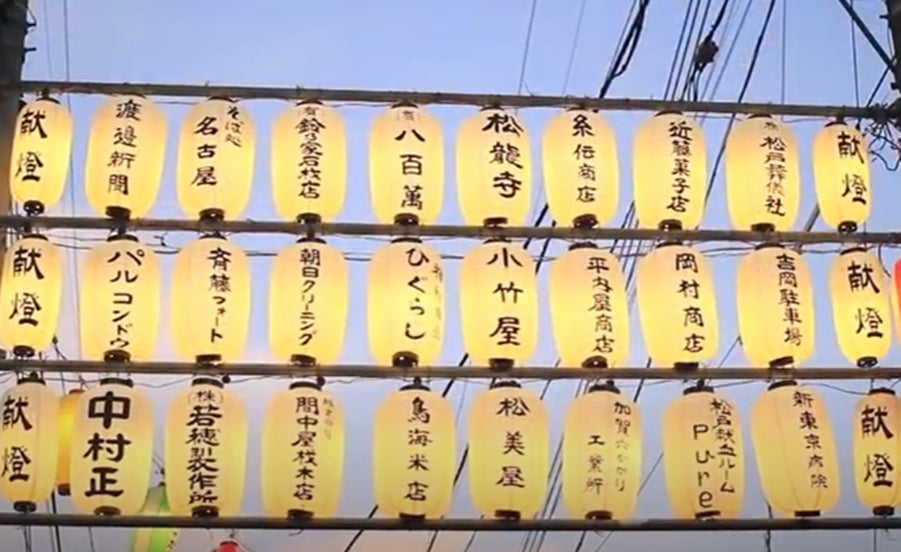 献燈
渡邉新聞
そば処
名古屋
鈴乃家石材店
八百萬
松龍寺
糸伝商店
近藤菓子店
松戸葬儀社
献燈
献燈
パルコンドウ
斉藤フォート
朝日クリーニング
ひぐらし
小竹屋
平内屋商店
岡村商店
吉岡駐車場
献燈
献燈
中村正
(株)若穂製作所
間中屋材木店
鳥海米店
松美屋
工業所
松戸献血ルーム
Pure
新東京病院
献燈